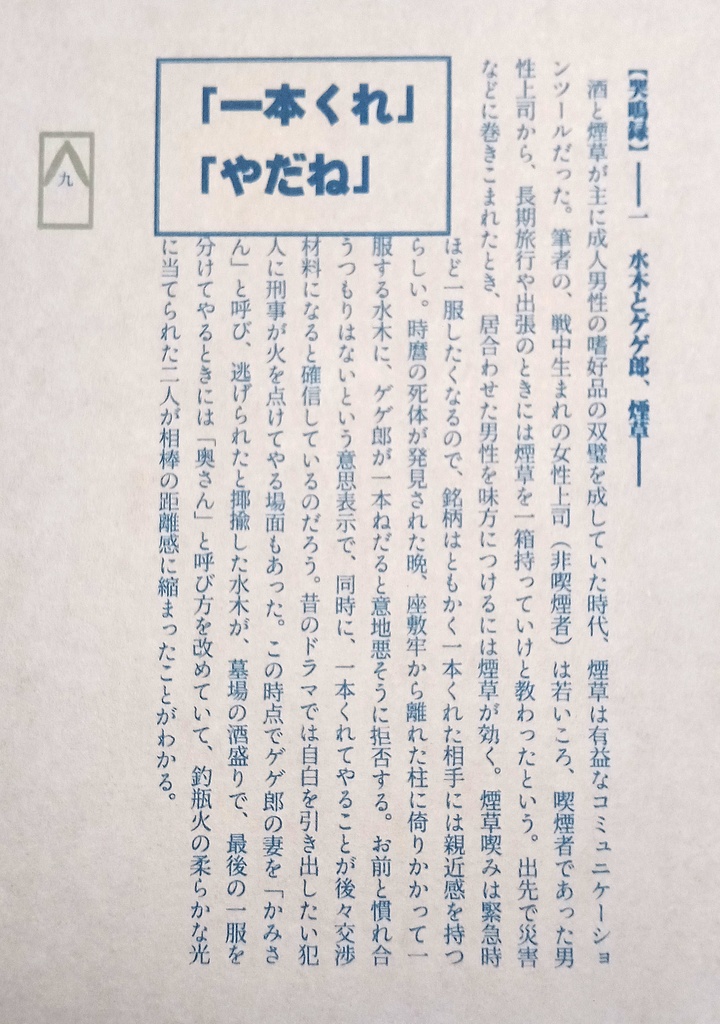 【哭鳴録】――一 水木とゲゲ郎、煙草――
酒と煙草が主に成人男性の嗜好品の双璧を成していた時代、煙草は有益なコミュニケーショ
ンツールだった。筆者の、戦中生まれの女性上司（非喫煙者）は若いころ、喫煙者であった男
性上司から、長期旅行や出張のときには煙草を一箱持っていけと教わったという。出先で災害
などに巻きこまれたとき、居合わせた男性を味方につけるには煙草が効く。煙草喫みは緊急時
「一本くれ」
「やだね」
ほど一服したくなるので、銘柄はともかく一本くれた相手には親近感を持つ
らしい。時麿の死体が発見された晩、座敷牢から離れた柱に倚りかかって一
服する水木に、ゲゲ郎が一本ねだると意地悪そうに拒否する。お前と慣れ合
うつもりはないという意思表示で、同時に、一本くれてやることが後々交渉
材料になると確信しているのだろう。昔のドラマでは自白を引き出したい犯
人に刑事が火を点けてやる場面もあった。この時点でゲゲ郎の妻を「かみさ
ん」と呼び、逃げられたと揶揄した水木が、墓場の酒盛りで、最後の一服を
分けてやるときには「奥さん」と呼び方を改めていて、釣瓶火の柔らかな光
に当てられた二人が相棒の距離感に縮まったことがわかる。
九